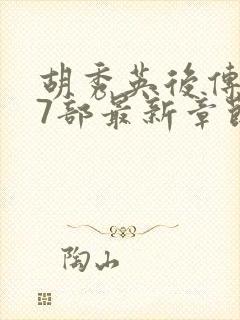 胡秀英後傳
7部最新章節
陶山